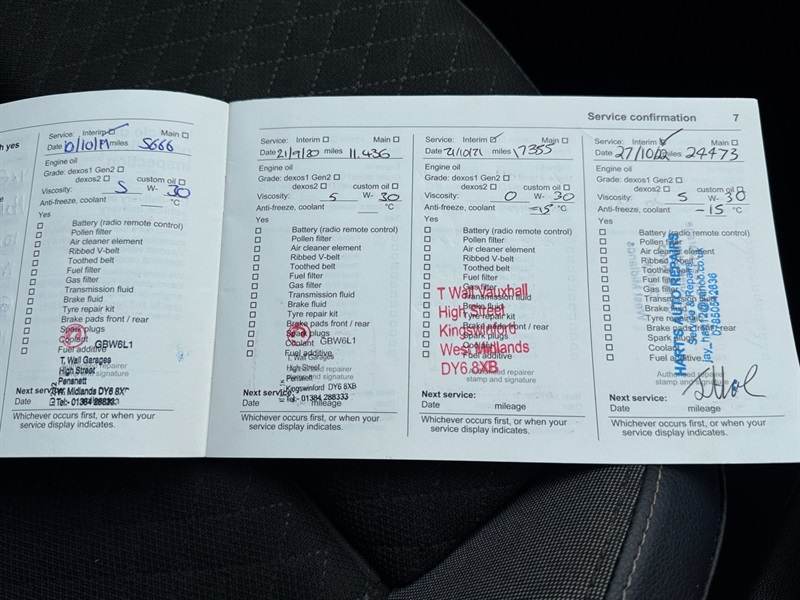 Service confirmation 7
h yes
Service: Interim ☑ Main ☐
Date 10/10/19 miles 5666
Engine oil
Grade: dexos1 Gen2 ☐
dexos2 ☐ custom oil ☐
Viscosity: 5 W- 30
Anti-freeze, coolant °C
Yes
☐ Battery (radio remote control)
☐ Pollen filter
☐ Air cleaner element
☐ Ribbed V-belt
☐ Toothed belt
☐ Fuel filter
☐ Gas filter
☐ Transmission fluid
☐ Brake fluid
☐ Tyre repair kit
☐ Brake pads front / rear
☐ Spark plugs
☐ Coolant
☐ Fuel additive
GBW6L1
T. Wall Garages
High Street
Pensnett
W. Midlands DY6 8X
Tel:- 01384 288333
repairer
and signature
Next service:
Date
Whichever occurs first, or when your
service display indicates.
Service: Interim ☐ Main ☐
Date 21/9/20 miles 11.436
Engine oil
Grade: dexos1 Gen2 ☐
dexos2 ☐ custom oil ☐
Viscosity: 5 W- 30
Anti-freeze, coolant °C
Yes
☐ Battery (radio remote control)
☐ Pollen filter
☐ Air cleaner element
☐ Ribbed V-belt
☐ Toothed belt
☐ Fuel filter
☐ Gas filter
☐ Transmission fluid
☐ Brake fluid
☐ Tyre repair kit
☐ Brake pads front / rear
☐ Spark plugs
☐ Coolant
☐ Fuel additive
GBW6L1
T. Wall Garages
High Street
Pensnett
Kingswinford DY6 8YX
Tel:- 01384 288333
repairer
and signature
Next service:
Date mileage
Whichever occurs first, or when your
service display indicates.
Service: Interim ☑ Main ☐
Date 21/10/21 miles 17355
Engine oil
Grade: dexos1 Gen2 ☐
dexos2 ☐ custom oil ☐
Viscosity: 0 W- 30
Anti-freeze, coolant -15 °C
Yes
☐ Battery (radio remote control)
☐ Pollen filter
☐ Air cleaner element
☐ Ribbed V-belt
☐ Toothed belt
☐ Fuel filter
☐ Gas filter
☐ Transmission fluid
☐ Brake fluid
☐ Tyre repair kit
☐ Brake pads front / rear
☐ Spark plugs
☐ Coolant
☐ Fuel additive
T Wall Vauxhall
High Street
Kingswinford
West Midlands
DY6 8XB
repairer
stamp and signature
Next service:
Date mileage
Whichever occurs first, or when your
service display indicates.
Service: Interim ☑ Main ☐
Date 27/10/22 miles 24473
Engine oil
Grade: dexos1 Gen2 ☐
dexos2 ☐ custom oil ☐
Viscosity: 5 W- 30
Anti-freeze, coolant -15 °C
Yes
☐ Battery (radio remote control)
☐ Pollen filter
☐ Air cleaner element
☐ Ribbed V-belt
☐ Toothed belt
☐ Fuel filter
☐ Gas filter
☐ Transmission fluid
☐ Brake fluid
☐ Tyre repair kit
☐ Brake pads front / rear
☐ Spark plugs
☐ Coolant
☐ Fuel additive
HARTS AUTO REPAIRS
West Midlands
Authorised repairer
stamp and signature
Next service:
Date mileage
Whichever occurs first, or when your
service display indicates.